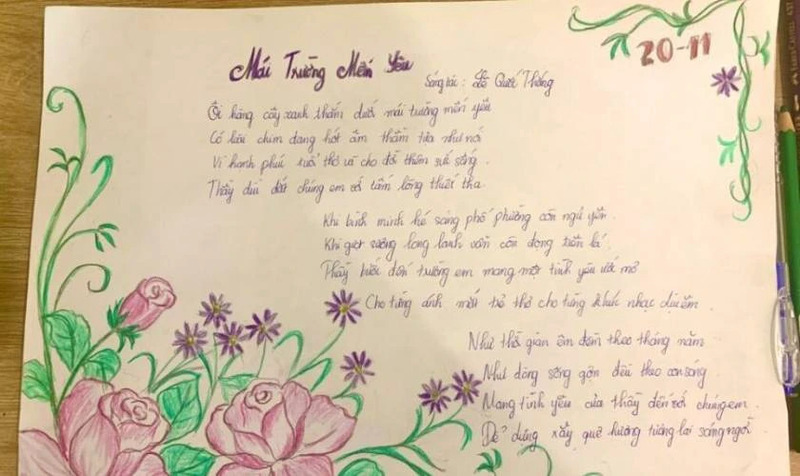 20-11
Mái Trường Mến Yêu
Sáng tác: Lê Quốc Thắng
Ôi hàng cây xanh thắm dưới mái trường mến yêu
Có loài chim đang hót âm thầm tựa như nói
Vì hạnh phúc tuổi thơ và cho đời thêm sức sống.
Thầy dìu dắt chúng em với tấm lòng thiết tha.
Khi bình minh hé sáng phố phường còn ngủ yên.
Khi giọt sương long lanh vẫn còn đọng trên lá.
Thầy bước đến trường em mang một tình yêu ước mơ
Cho từng ánh mắt trẻ thơ cho từng khúc nhạc dịu êm.
Như thời gian êm đềm theo tháng năm
Như dòng sông gợn đều theo cơn sóng
Mang tình yêu của thầy đến với chúng em.
Để dựng xây quê hương tương lai sáng ngời.